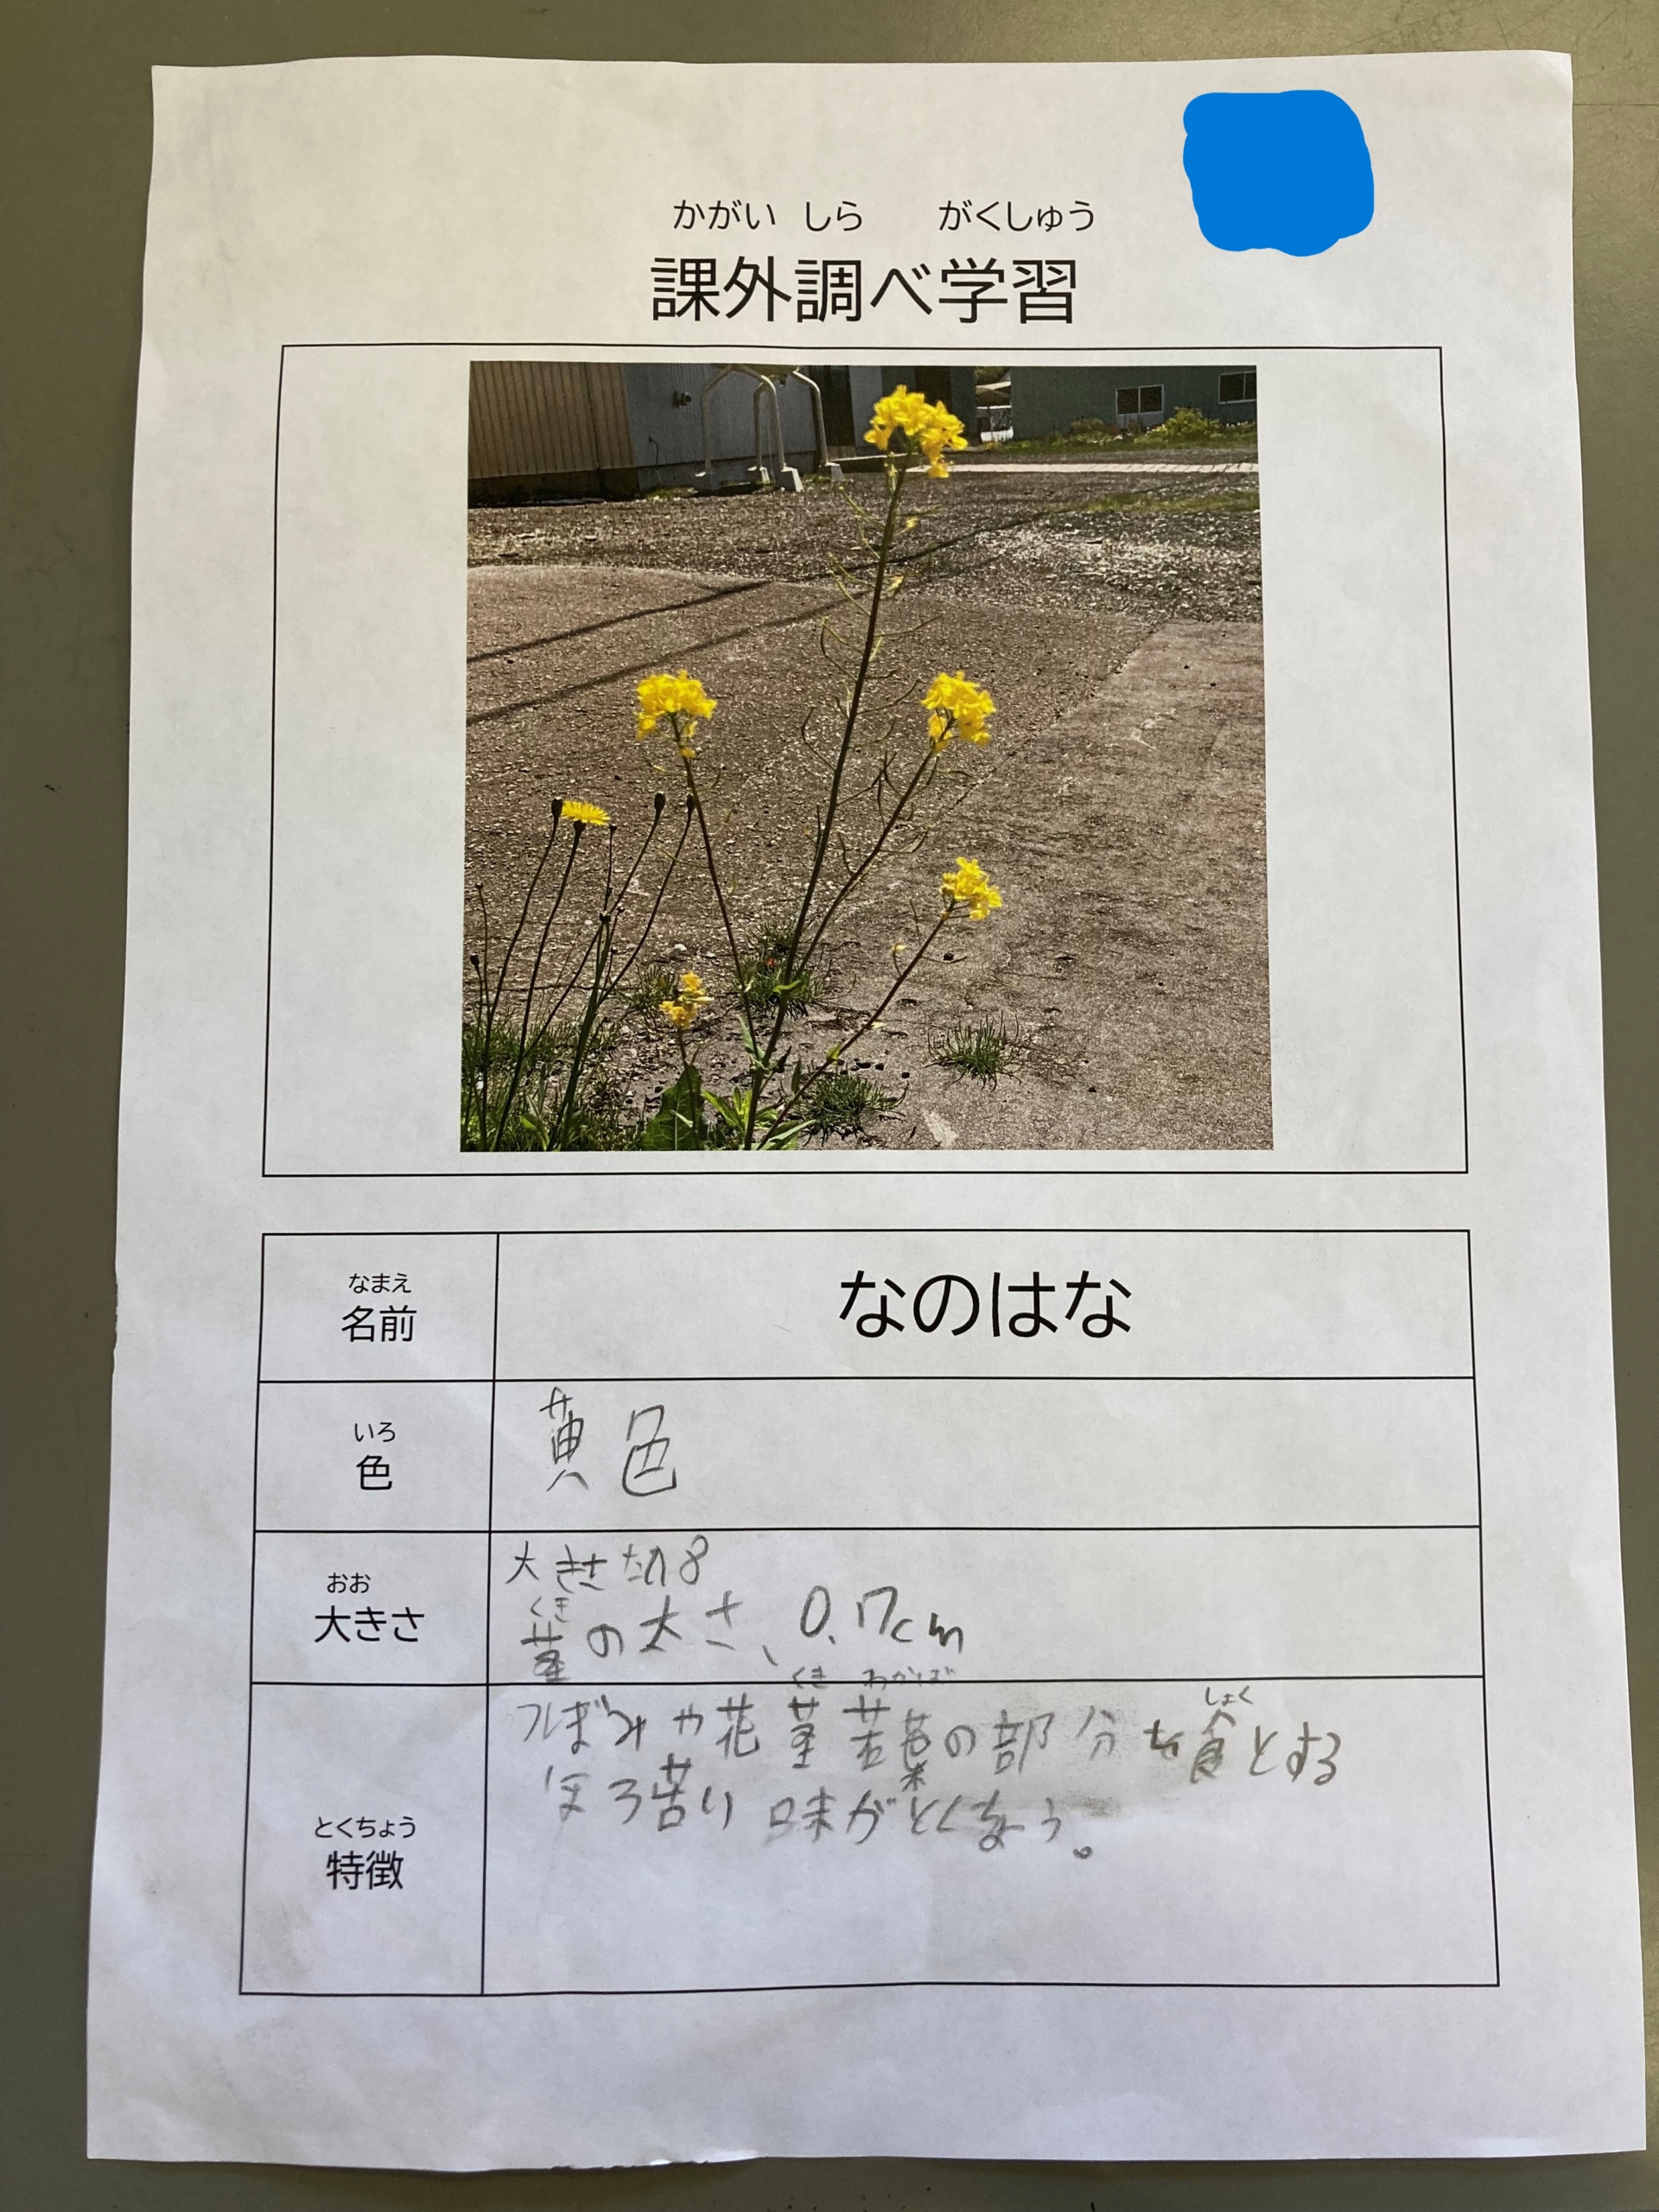 かがい しら がくしゅう
課外調べ学習
なまえ
名前
なのはな
いろ
色
黄色
おお
大きさ
大きさ
くき
茎の太さ、0.17cm
とくちょう
特徴
くき わかば しょく
つぼみや花茎若葉の部分を食とする
ほろ苦い味がとくちょう。